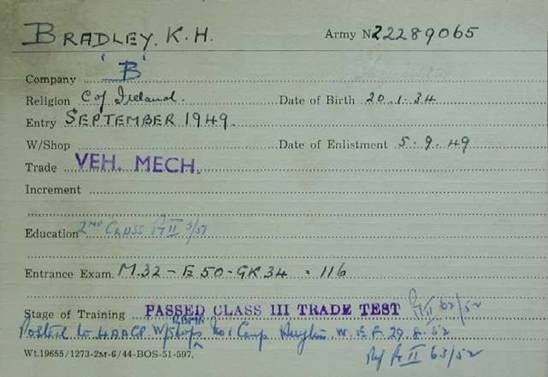 BRADLEY. K.H. Army No 22289065
Company "B"
Religion C of Ireland. Date of Birth 20.1.34
Entry SEPTEMBER 1949.
W/Shop Date of Enlistment 5.9.49
Trade VEH. MECH.
Increment
Education 2ND CLASS PT II 3/51
Entrance Exam. M.32 - E 50 - GK 34 . 116
Stage of Training PASSED CLASS III TRADE TEST PT II 63/52
Posted to HAAGP W/Shops REME No 1 Camp W.E.F. 29.8.52
Ref PT II 63/52
Wt.19655/1273-2M-6/44-BOS-51-597.